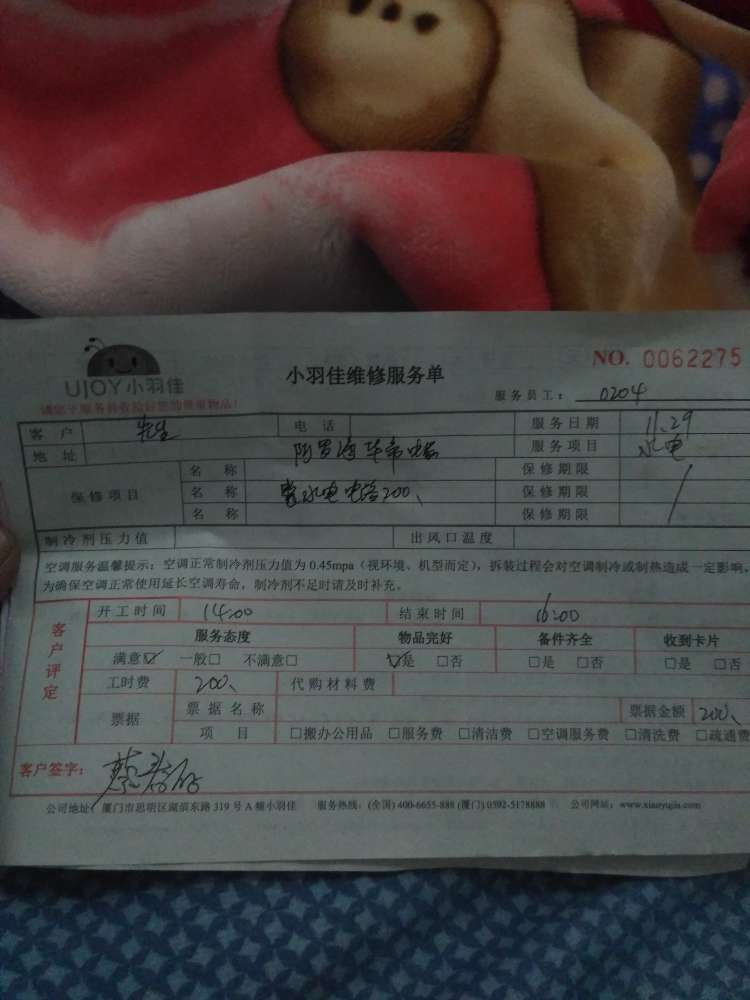 UJOY小羽佳
小羽佳维修服务单
NO. 0062275
服务员工： 0204
客户 先生 电话 服务日期 11.29
地址 服务项目 水电
保修项目 名称 保修期限
名称 水电 200、 保修期限
名称 保修期限
制冷剂压力值 出风口温度
空调服务温馨提示：空调正常制冷剂压力值为0.45mpa（视环境、机型而定），拆装过程会对空调制冷或制热造成一定影响，
为确保空调正常使用延长空调寿命，制冷剂不足时请及时补充。
客户评定
开工时间 14:00 结束时间 16:00
服务态度 物品完好 备件齐全 收到卡片
满意☑ 一般□ 不满意□ ☑是 □否 □是 □否 □是 □否
工时费 200、 代购材料费
票据 票据名称 票据金额 200、
项目 □搬办公用品 □服务费 □清洁费 □空调服务费 □清洗费 □疏通费
客户签字：
公司地址：厦门市思明区湖滨东路319号A幢小羽佳 服务热线：(全国) 400-6655-888 (厦门) 0592-5178888 公司网站：www.xiaoyujia.com